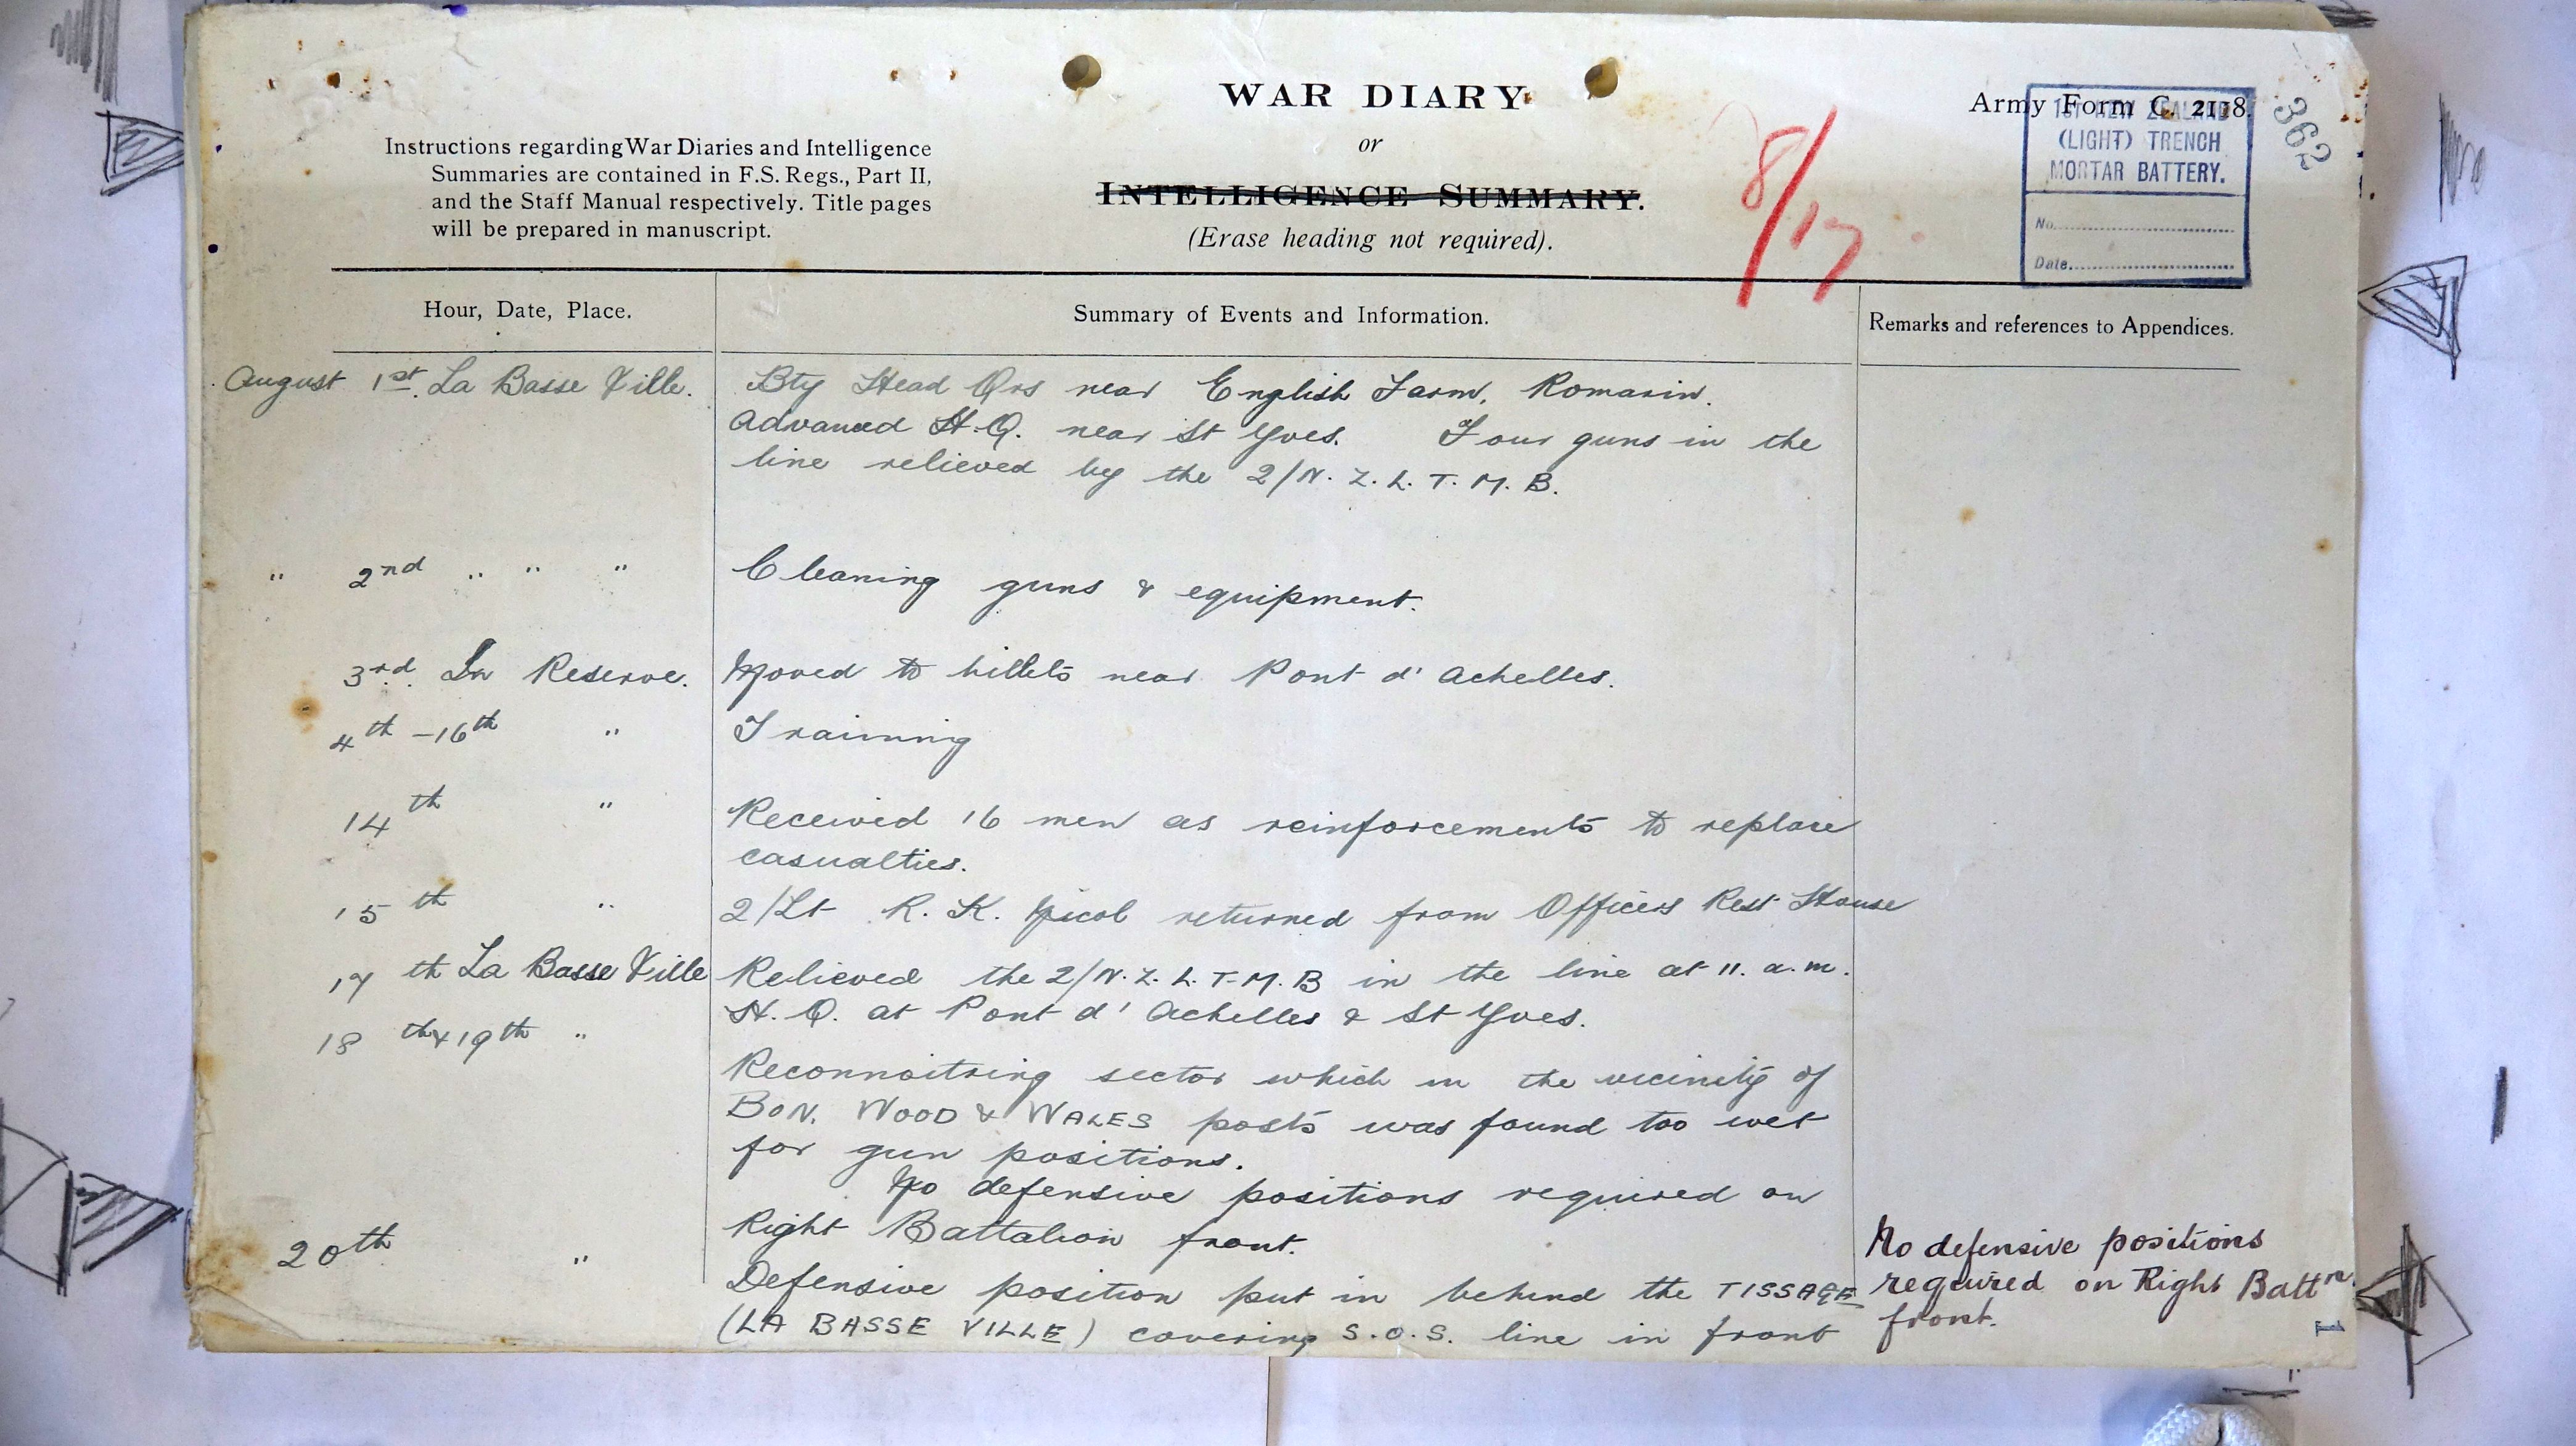 WAR DIARY
or
INTELLIGENCE SUMMARY.
(Erase heading not required).
Instructions regarding War Diaries and Intelligence
Summaries are contained in F.S. Regs., Part II,
and the Staff Manual respectively. Title pages
will be prepared in manuscript.
8/17
Army Form C. 2118.
1ST NEW ZEALAND
(LIGHT) TRENCH
MORTAR BATTERY.
No.
Date.
362
Hour, Date, Place.
Summary of Events and Information.
Remarks and references to Appendices.
August 1st. La Basse Ville.
Bty Head Qrs near English Farm, Romarin.
Advanced H.Q. near St Yves. Four guns in the
line relieved by the 2/N.Z.L.T.M.B.
" 2nd " " "
Cleaning guns & equipment.
3rd. In Reserve.
Moved to billets near Pont d' Achelles.
4th - 16th "
Training
14th "
Received 16 men as reinforcements to replace
casualties.
15th "
2/Lt R. K. Nicol returned from Officers Rest House
17th La Basse Ville
Relieved the 2/N.Z.L.T.M.B in the line at 11. a.m.
H.Q. at Pont d' Achelles & St Yves.
18th & 19th "
Reconnoitring sector which in the vicinity of
BON. WOOD & WALES posts was found too wet
for gun positions.
No defensive positions required on
Right Battalion front.
20th "
Defensive position put in behind the TISSAGE
(LA BASSE VILLE) covering S.O.S. line in front
No defensive positions
required on Right Battn.
front.
1